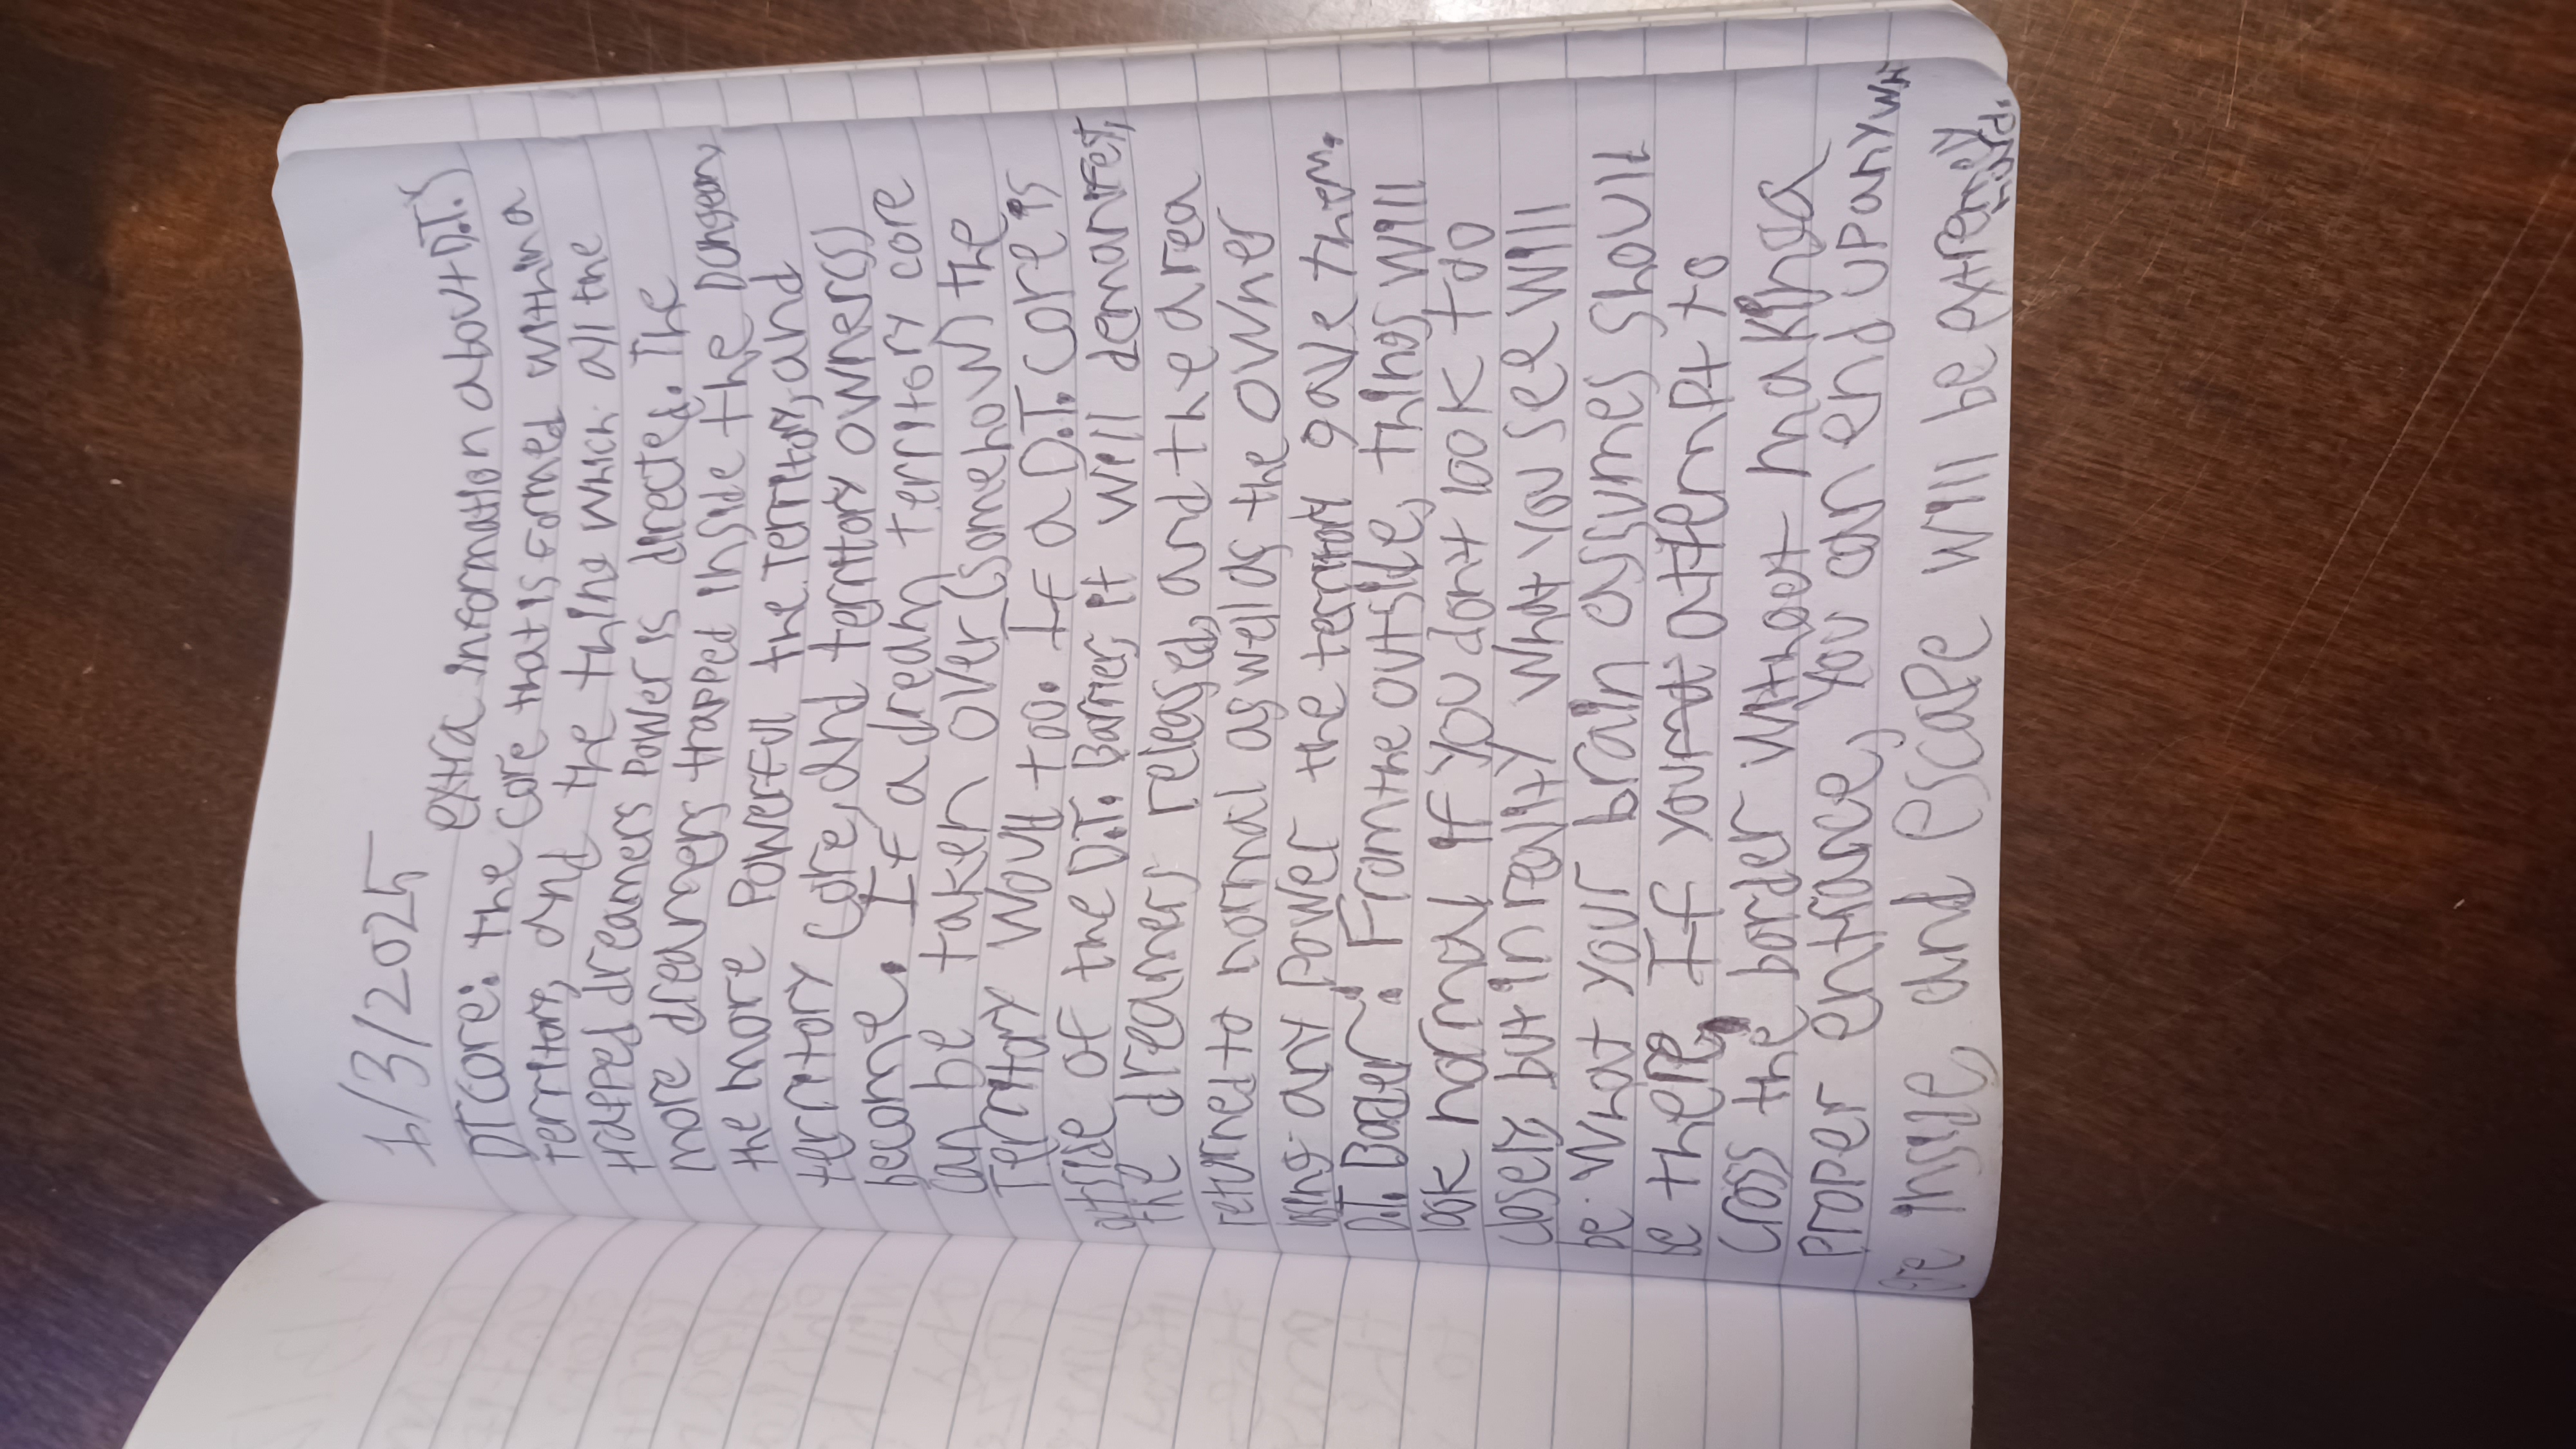 1/3/2025
extra information about D.T.s
DT core: the core that is formed within a
territory, and the thing which all the
trapped dreamers power is directed. The
more dreamers trapped inside the Dungeon,
the more powerful the territory, and
territory core, and territory owner(s)
become. If a dream territory core
can be taken over (somehow) the
Territory would too. If a D.T. core is
outside of the D.T. Barrier, it will demanifest,
the dreamers released, and the area
returned to normal as well as the owner
losing any power the territory gave them.
D.T. Border: From the outside, things will
look normal if you don't look too
closely, but in reality what you see will
be what your brain assumes should
be there. If you attempt to
cross the border without making a
proper entrance, you can end up anywh
ere inside, and escape will be extremely
hard.